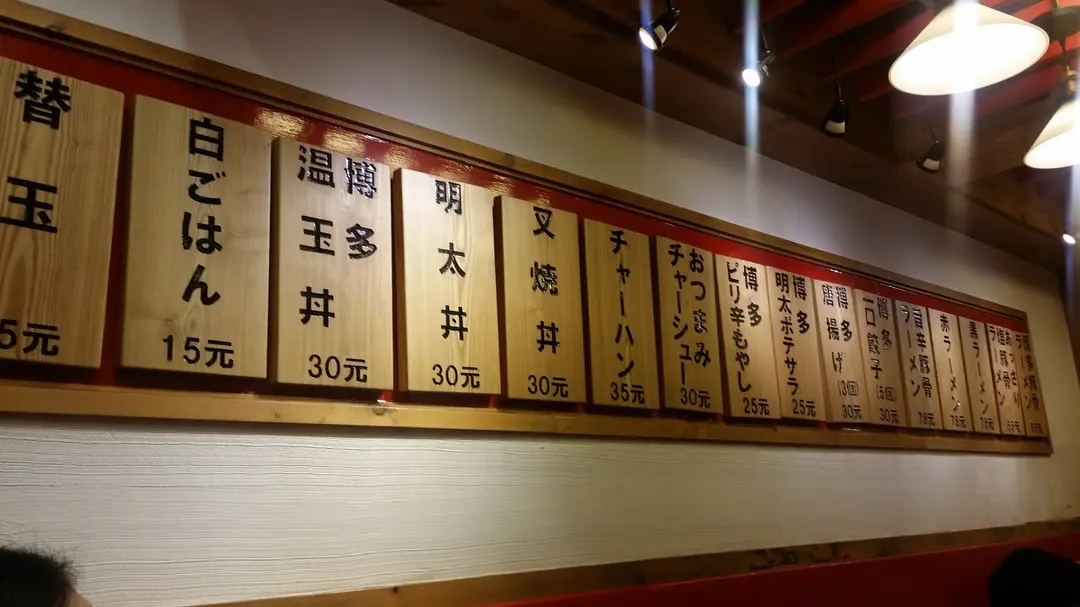 博多豚骨
ラーメン
あっさり
塩豚骨
ラーメン
黒ラーメン
赤ラーメン
78元
旨辛豚骨
ラーメン
78元
博多
一口餃子
(5個)
30元
博多
唐揚げ
(3個)
30元
博多
明太ポテサラ
25元
博多
ピリ辛もやし
25元
おつまみ
チャーシュー
30元
チャーハン
35元
叉焼丼
30元
明太丼
30元
博多
温玉丼
30元
白ごはん
15元
替玉
5元